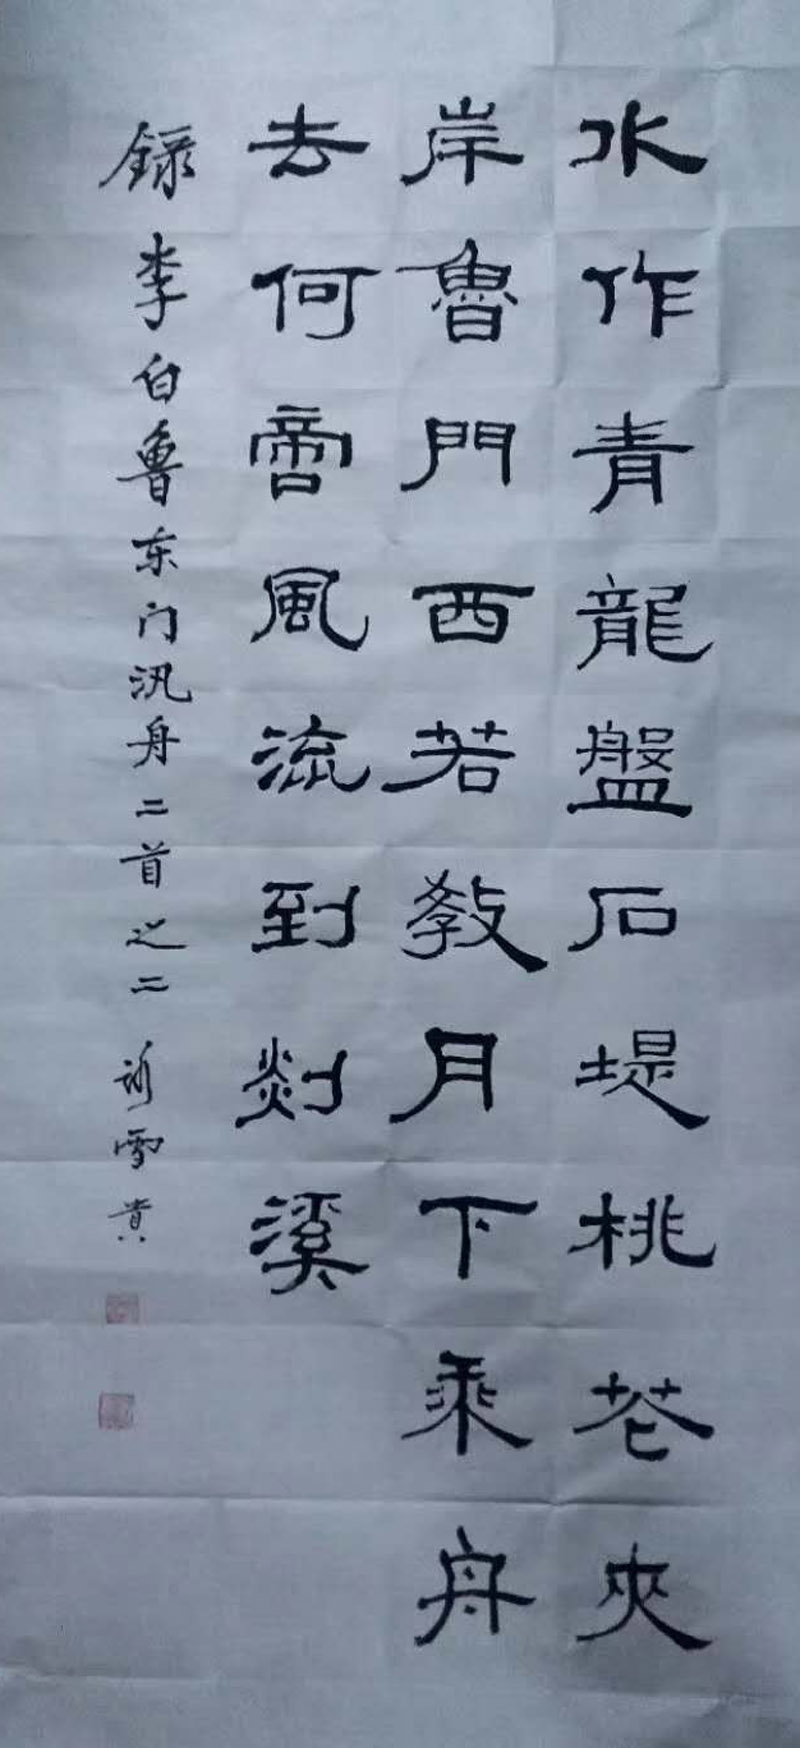 水作青龍盤石堤桃花夾
岸魯門西若教月下乘舟
去何啻風流到剡溪
録李白鲁东门汎舟二首之二 雪贵